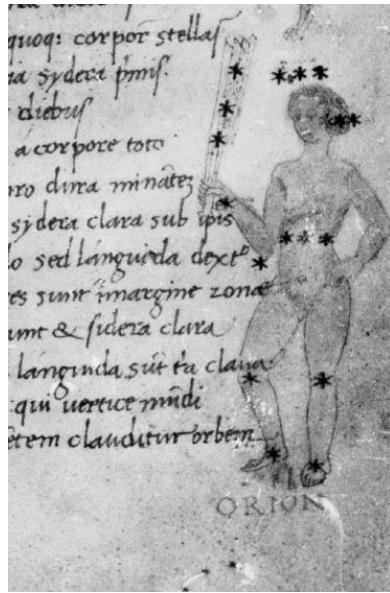 quoq: corpor stellas
ia sydera pmis.
diebus
a corpore toto
ro dira minãtez
sydera clara sub ipis
o sed languida dext
es sunt imargine zonae
unt & sidera clara
languida sut clava
qui uertice mũdi
etem clauditur orbem
ORION